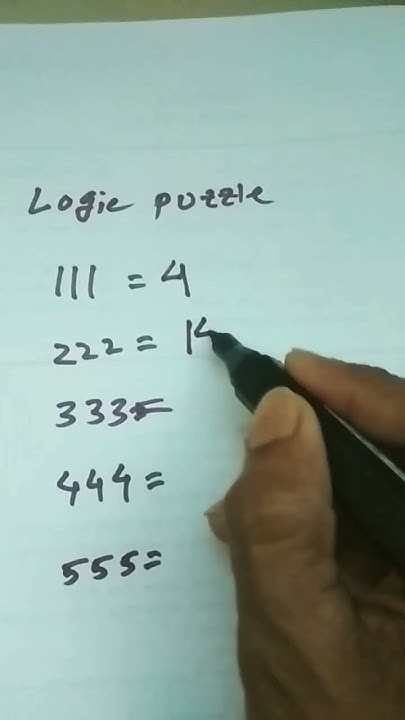 Logic puzzle
111 = 4
222 = 14
333=
444=
555=